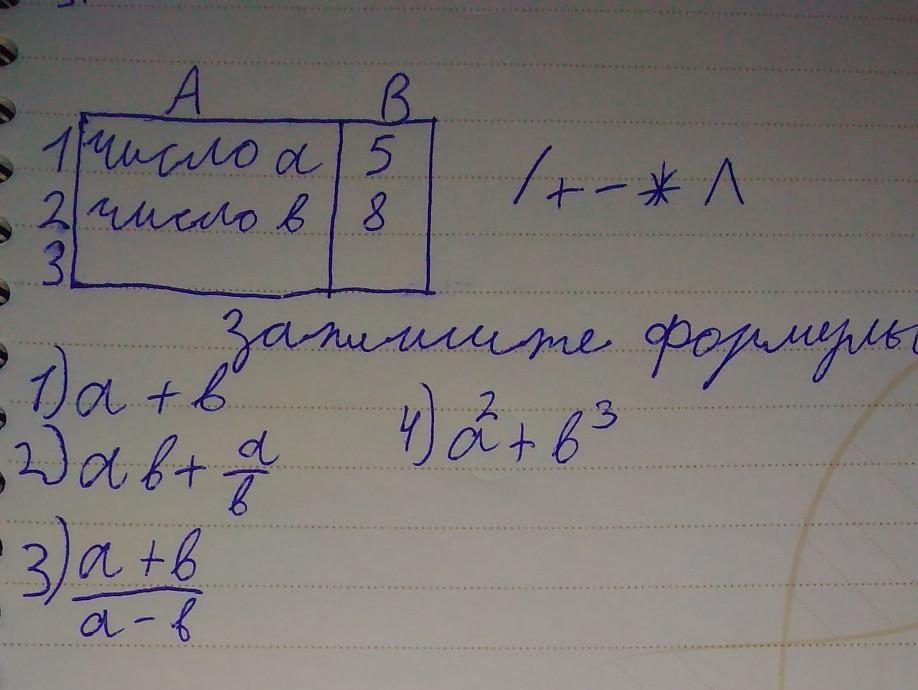 A B
1 число a 5
2 число в 8
3
/ + - * ^
Запишите формулы
1) a + в
2) a в + a/в
3) (a + в)/(a - в)
4) a² + в³